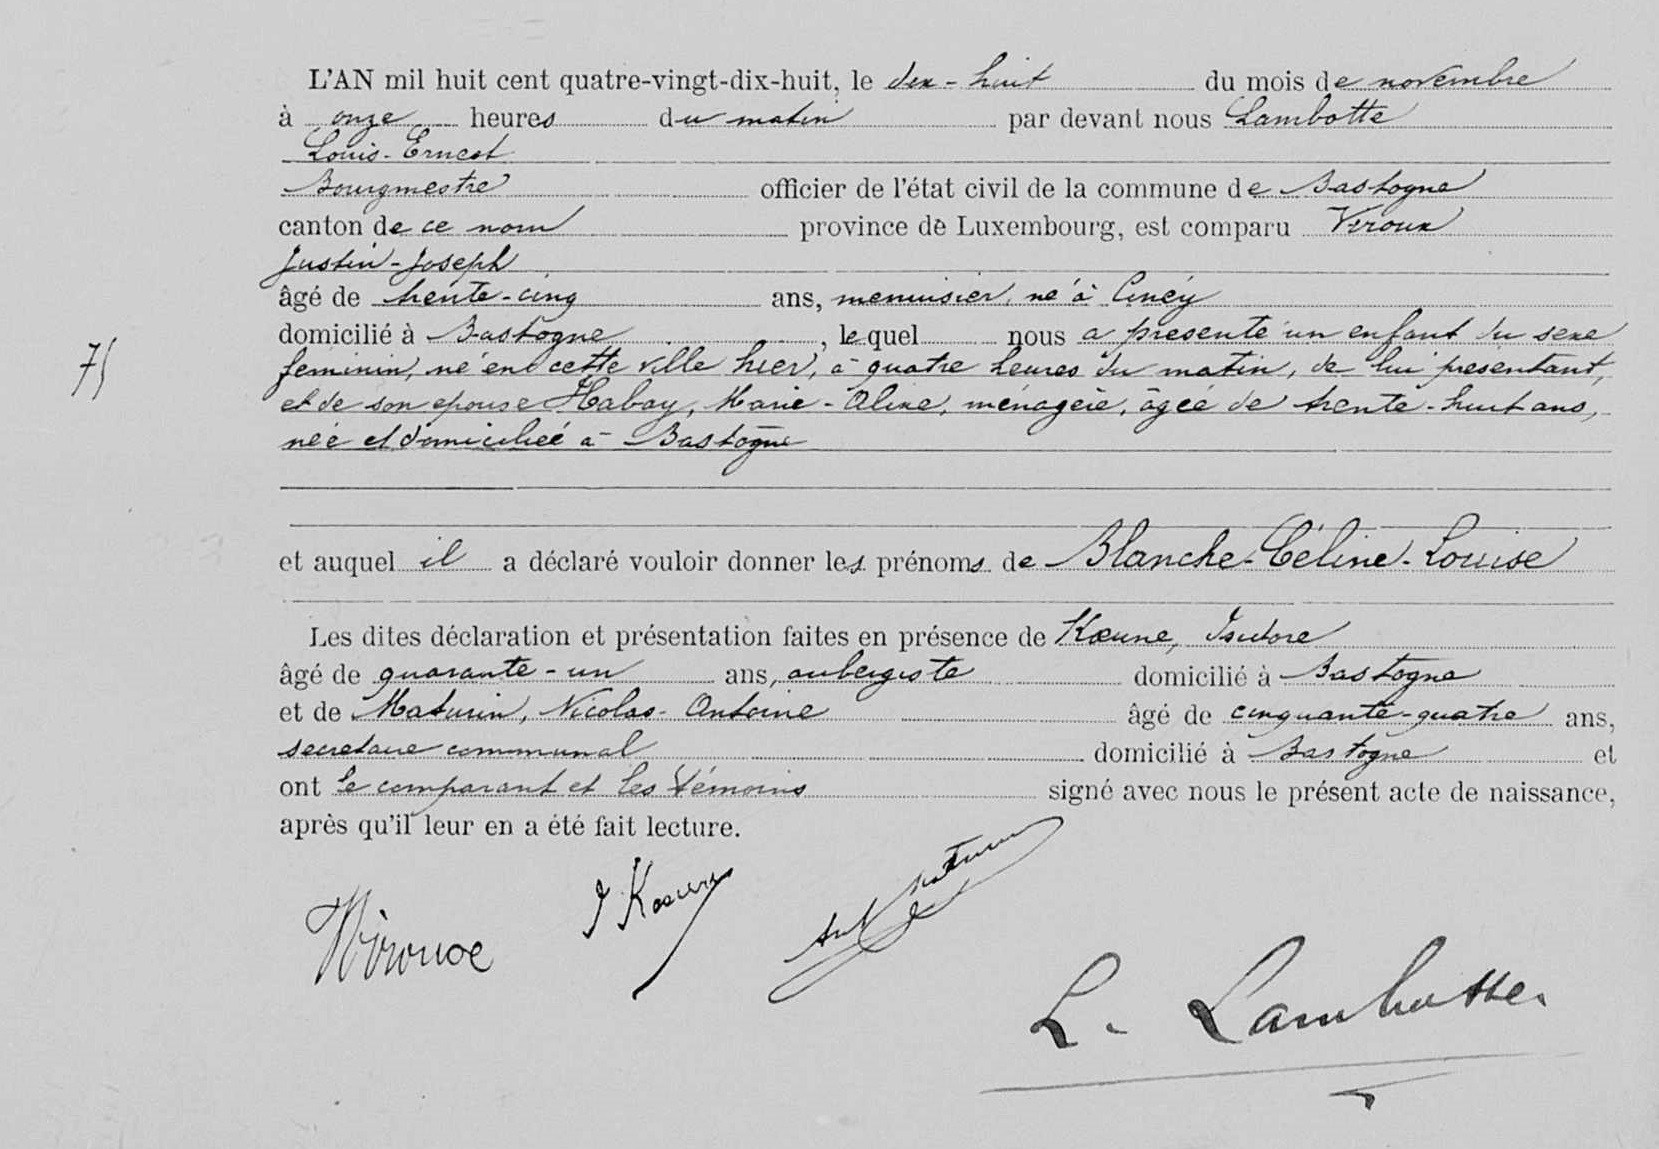 L'AN mil huit cent quatre-vingt-dix-huit, le dix-huit du mois de novembre
à onze heures du matin par devant nous Lambotte
Louis-Ernest
Bourgmestre officier de l'état civil de la commune de Bastogne
canton de ce nom province de Luxembourg, est comparu Viroux
Justin-Joseph
âgé de trente-cinq ans, menuisier, né à Ciney
domicilié à Bastogne, lequel nous a présenté un enfant du sexe
féminin, né en cette ville hier, à quatre heures du matin, de lui présentant,
et de son épouse Habay, Marie-Aline, ménagère, âgée de trente-huit ans,
née et domiciliée à Bastogne
75
et auquel il a déclaré vouloir donner les prénoms de Blanche-Céline-Louise
Les dites déclaration et présentation faites en présence de Kœune, Isidore
âgé de quarante-un ans, aubergiste domicilié à Bastogne
et de Maturin, Nicolas-Antoine âgé de cinquante-quatre ans,
secrétaire communal domicilié à Bastogne et
ont le comparant et les témoins signé avec nous le présent acte de naissance,
après qu'il leur en a été fait lecture.
Viroux
I Koeune
Ant Maturin
L. Lambotte.